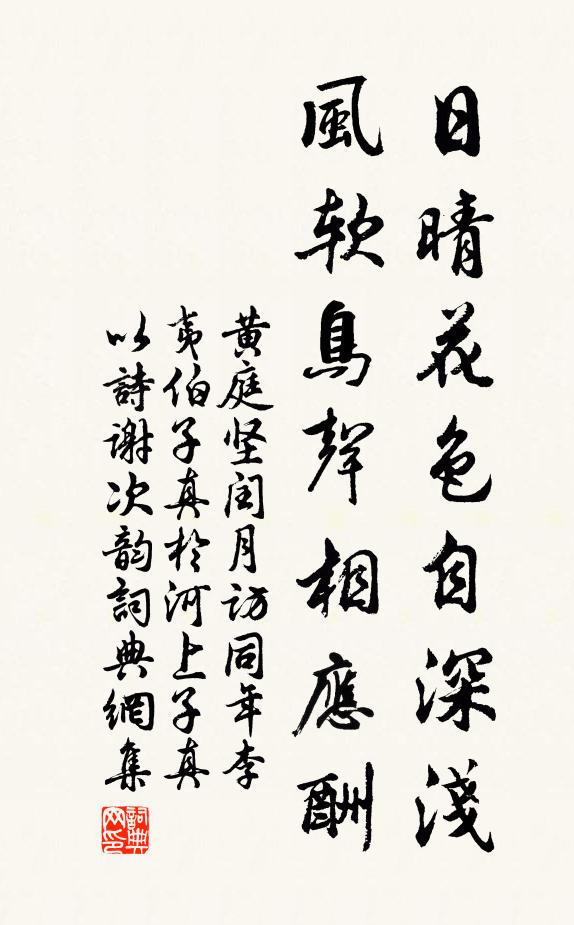 日晴花色自深淺
風软鳥聲相應酬
黄庭坚閏月訪同年李
夷伯子真於河上子真
以詩谢次韵詞典網集
詞典网印